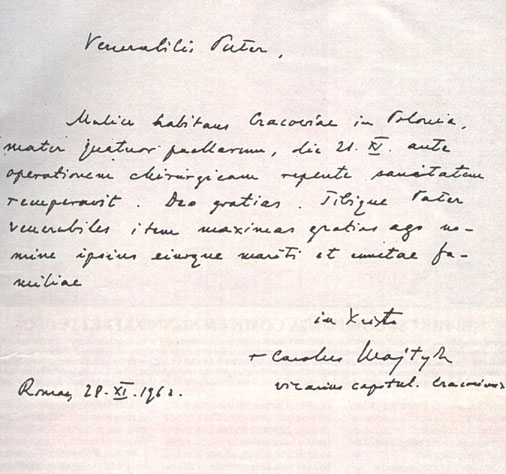 Venerabilis Pater,
Mulier habitans Cracoviae in Polonia,
mater quatuor puellarum, die 21. XI. ante
operationem chirurgicam repente sanitatem
recuperavit. Deo gratias. Tibique Pater
venerabiles item maximas gratias ago no-
mine ipsius eiusque mariti et cunctae fa-
miliae
in Xristo
+ Carolus Wojtyła
vicarius capitul. Cracoviens
Romae, 28. XI. 1962.